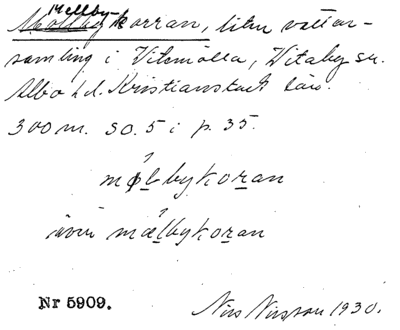 Mellby-
Mollbykorran, liten vatten-
samling i Vitemölla, Vitaby sn.
Albo hd. Kristianstads län.
300 m. SO. 5 i p. 35.
mølbykoran
även mælbykoran
Nr 5909.
Nils Nilsson 1930.